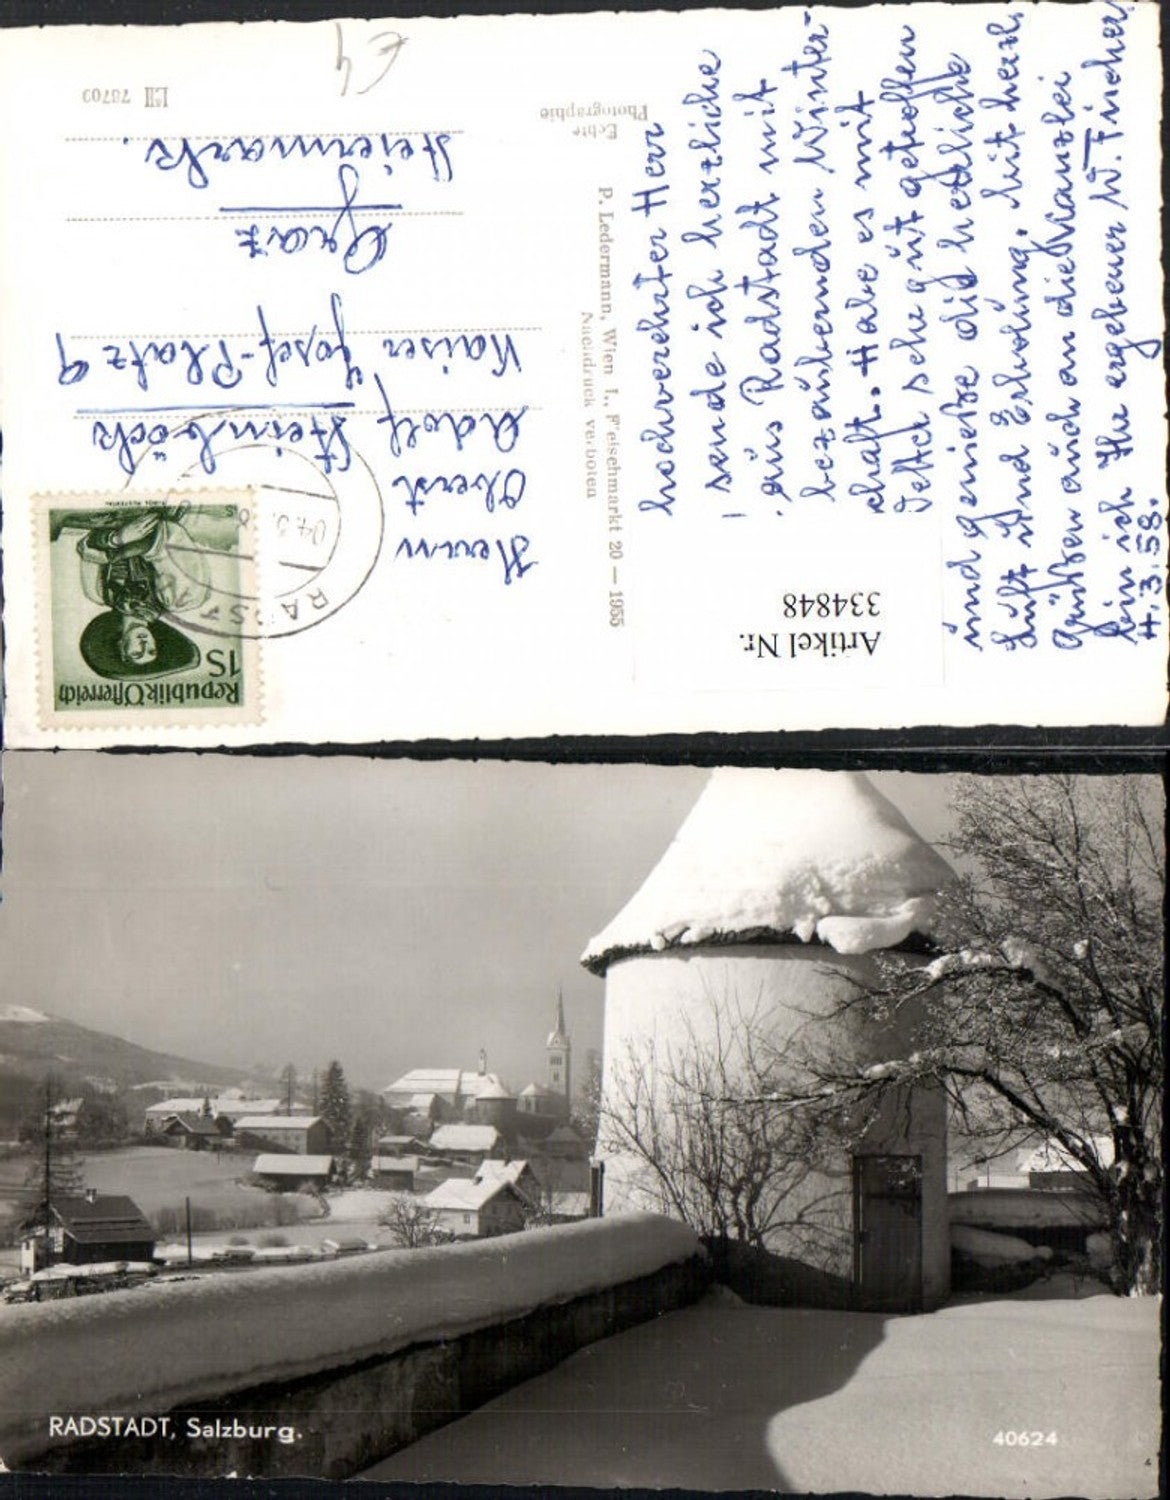 Hochverehrter Herr
sende ich herzliche
aus Radstadt mit
bezaubernden Winter-
schaft. Habe es mit
Wetter sehr gut getroffen
und genieße die herrliche
Luft und Erholung. Mit herzl.
Grüßen auch an die Kanzlei
bin ich Ihr ergebener W. Fischer
4.3.58.
Echte
Photographie
P. Ledermann, Wien I., Fleischmarkt 20 — 1955
Nachdruck verboten
LII 78703
€4
Herrn
Oberst
Adolf Steinböck
Kaiser Josef-Platz 9
Graz
Steiermark.
Republik Österreich
1S
RADSTADT
04.3.
Artikel Nr.
334848
RADSTADT, Salzburg.
40624